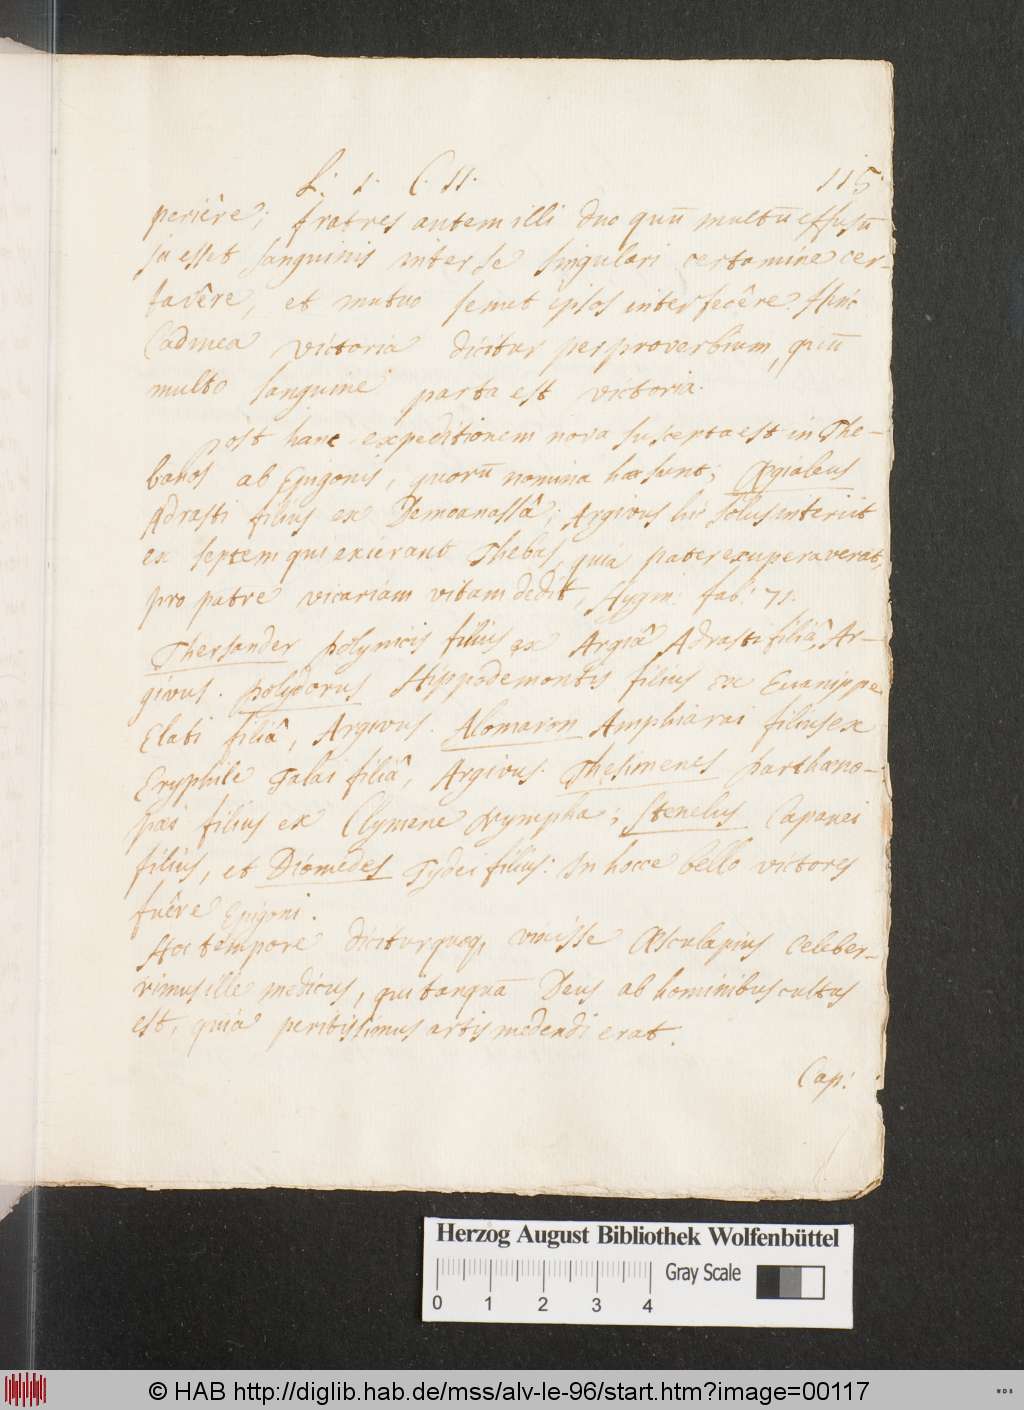 L. 1. C. 11. 115.
periêre; fratres autem illi duo quū multū effusū
ja esset sanguinis inter se singulari certamine cer-
tavêre, et mutuo semet ipsos interfecêre. Hinc
Cadmea victoria dicitur per proverbium, quū
multo sanguine parta est victoria.
post hanc expeditionem nova suscepta est in The-
banos ab Epigonis, quorū nomina hæc sunt; Ægialeus
Adrasti filius ex Demoanassâ; Argivus hic solus interiit
ex septem qui exierant Thebas, quia pater exuperaverat,
pro patre vicariam vitam dedit, Hygin: fab: 71.
Thersander polynicis filius ex Argiâ Adrasti filiâ, Ar-
givus. polydorus Hippodemontis filius ex Euanippe
Elati filiâ, Argivus. Alomaron Amphiarai filius ex
Eryphile Talai filiâ, Argivus. Thesimenes parthano-
pæi filius ex Clymene Nympha; Stenelus Capanei
filius, et Diomedes Tydei filius: In hocce bello victores
fuêre Epigoni.
Hoc tempore dicitur quoq, vixisse Æsculapius celeber-
rimus ille medicus, qui tanquā Deus ab hominibus cultus
est, quia peritissimus artis medendi erat.
Cap:
Herzog August Bibliothek Wolfenbüttel
Gray Scale
0 1 2 3 4
© HAB http://diglib.hab.de/mss/alv-le-96/start.htm?image=00117